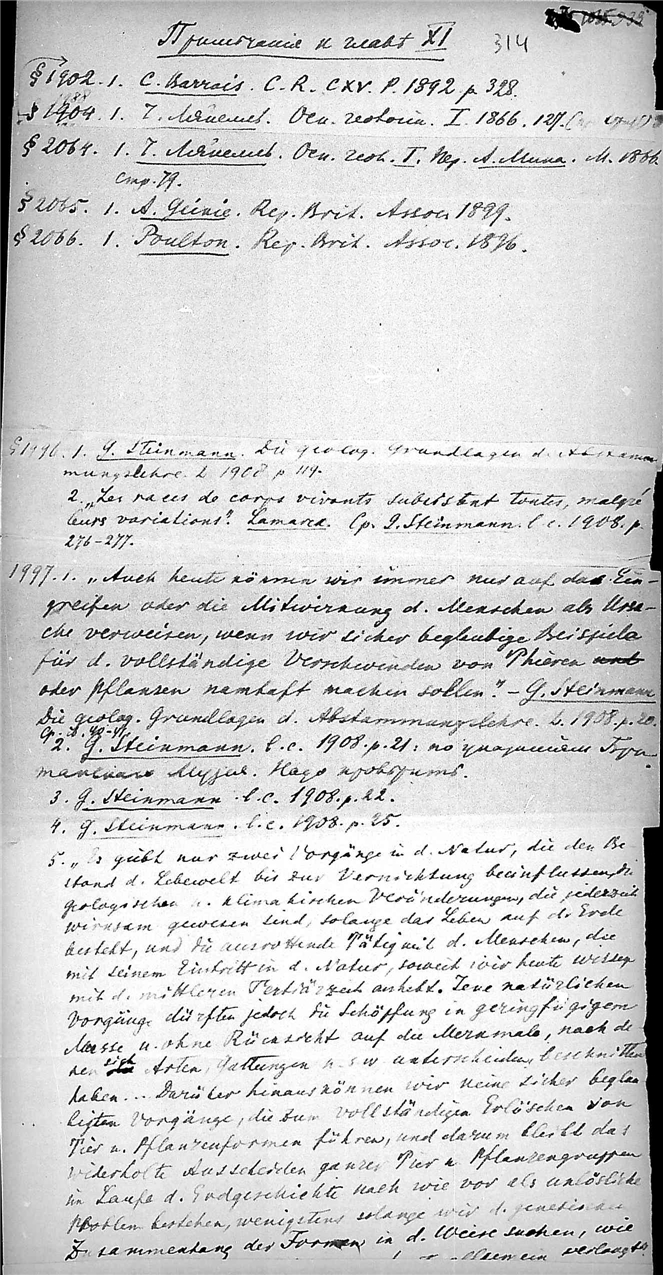 Примечание к главе XI 314
§1902. 1. C. Barrois. C. R. CXV. P. 1892 p. 328.
§1904. 1. Ч. Ляйелль. Осн. геологии. I. 1866. 127.
§2064. 1. Ч. Ляйелль. Осн. геол. I. Пер. А. Мина. М. 1866.
стр. 79.
§2065. 1. A. Geikie. Rep. Brit. Assoc. 1899.
§2066. 1. Poulton. Rep. Brit. Assoc. 1896.
§1996. 1. G. Steinmann. Die geolog. Grundlagen d. Abstam-
mungslehre. L. 1908 p. 119.
2. „Les races de corps vivants subsistent toutes, malgré
leurs variations". Lamarck. Ср. G. Steinmann. l. c. 1908. p.
276–277.
1997. 1. „Auch heute können wir immer nur auf das Ein-
greifen oder die Mitwirkung d. Menschen als Ursa-
che verweisen, wenn wir sicher beglaubigte Beispiele
für d. vollständige Verschwinden von Thieren und
oder Pflanzen namhaft machen sollen." – G. Steinmann
Die geolog. Grundlagen d. Abstammungslehre. L. 1908. p. 20.
2. G. Steinmann. l. c. 1908. p. 21:
Надо проверить.
3. G. Steinmann. l. c. 1908. p. 22.
4. G. Steinmann. l. c. 1908. p. 25.
5. „Es giebt nur zwei Vorgänge in d. Natur, die den Be-
stand d. Lebewelt bis zur Vernichtung beeinflussen, die
geologischen u. klimatischen Veränderungen, die jederzeit
wirksam gewesen sind, solange das Leben auf de Erde
besteht, und die ausrottende Tätigkeit d. Menschen, die
mit seinem Eintritt in d. Natur, soweit wir heute wissen
mit d. mittleren Tertiärzeit anhebt. Jene natürlichen
Vorgänge dürften jedoch die Schöpfung in geringfügigem
Masse u. ohne Rücksicht auf die Merkmale, nach de-
nen sich Arten, Gattungen u. s. w. unterscheiden, beschnitten
haben... Darüber hinaus können wir keine sicher beglau-
bigten Vorgänge, die zum vollständigen Erlöschen von
Tier u. Pflanzenformen führen, und darum bleibt das
widerholte Ausscheiden ganzer Tier u. Pflanzengruppen
im Laufe d. Erdgeschichte nach wie vor als unlösliche
Problem bestehen, wenigstens solange wir d. genetischen
Zusammenhang der Formen in d. Weise suchen, wie
allgemein verlangt"